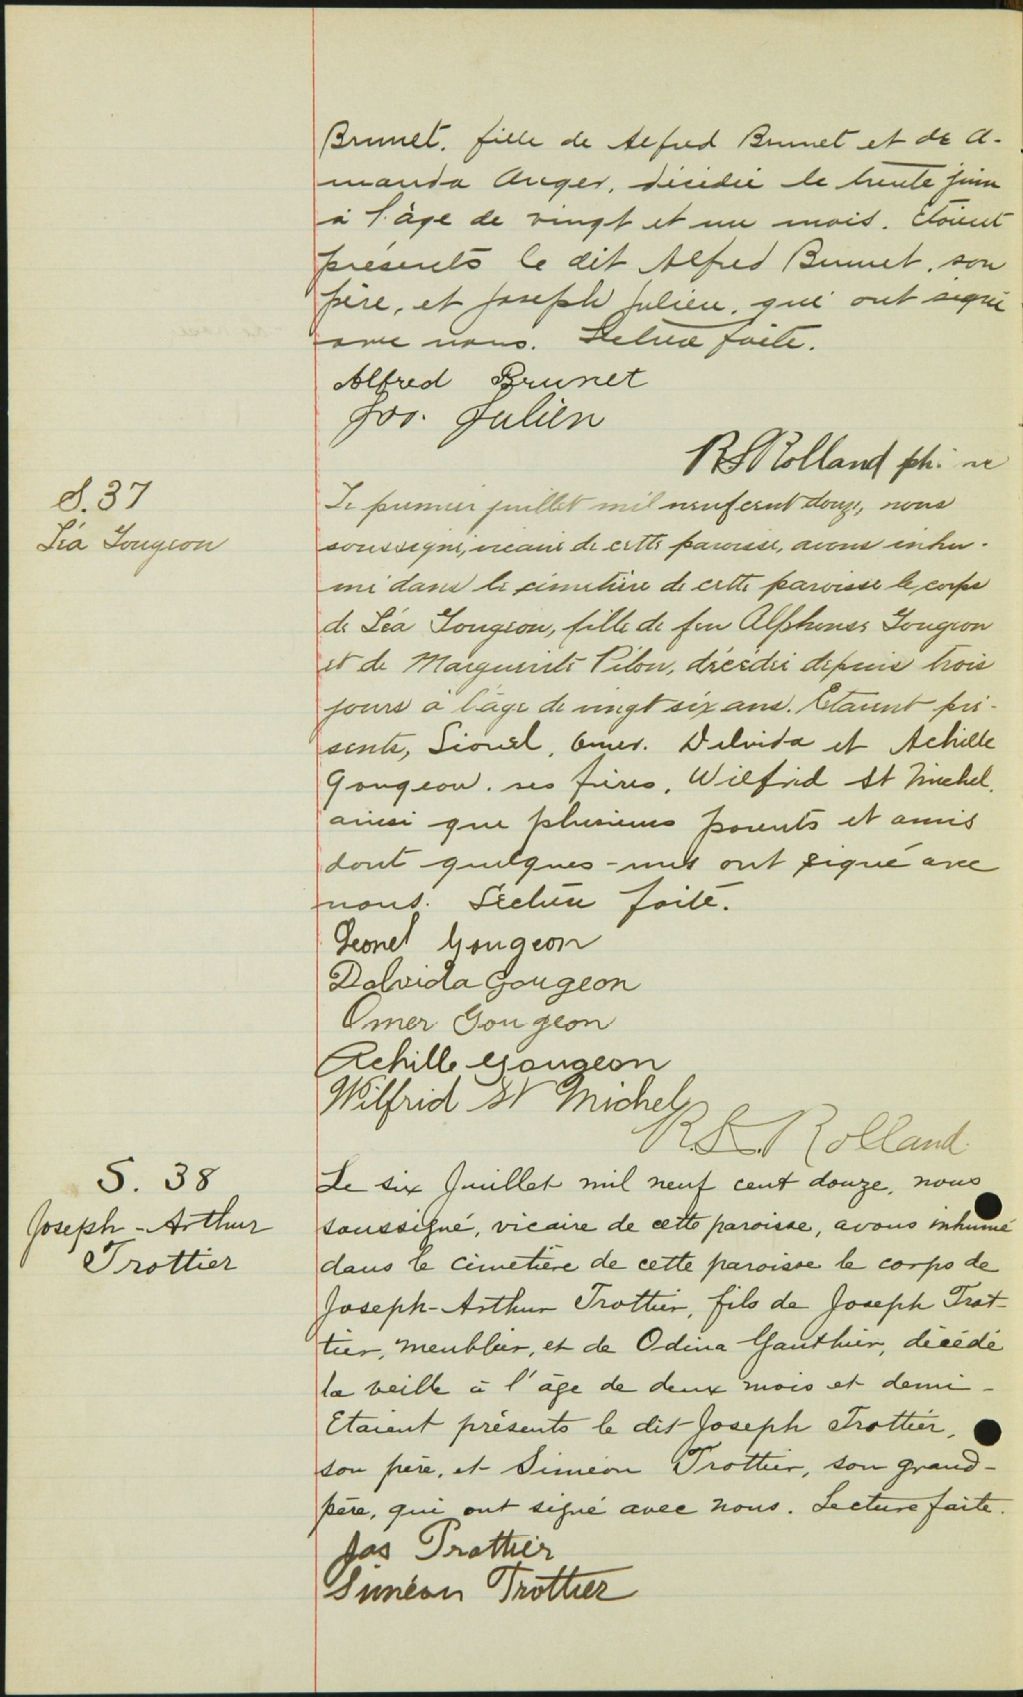 Brunet, fille de Alfred Brunet et de A-
manda Auger, décédée le trente juin
à l'âge de vingt et un mois. Etaient
présents le dit Alfred Brunet, son
père, et Joseph Julien, qui ont signé
avec nous. Lecture faite.
Alfred Brunet
Jos. Julien
R S Rolland ptre vic
S. 37
Léa Gougeon
Le premier juillet mil neuf cent douze, nous
soussigné, vicaire de cette paroisse, avons inhu-
mé dans le cimetière de cette paroisse le corps
de Léa Gougeon, fille de feu Alphonse Gougeon
et de Marguerite Pilon, décédée depuis trois
jours à l'âge de vingt six ans. Etaient pré-
sents, Lionel, Omer, Delvida et Achille
Gougeon, ses frères, Wilfrid St Michel,
ainsi que plusieurs parents et amis
dont quelques-uns ont signé avec
nous. Lecture faite.
Leonel Gougeon
Dalvida Gougeon
Omer Gougeon
Achille Gougeon
Wilfrid St Michel
R. S. Rolland
S. 38
Joseph-Arthur
Trottier
Le six Juillet mil neuf cent douze, nous
soussigné, vicaire de cette paroisse, avons inhumé
dans le cimetière de cette paroisse le corps de
Joseph-Arthur Trottier, fils de Joseph Trot-
tier, meublier, et de Odina Gauthier, décédé
la veille à l'âge de deux mois et demi-
Etaient présents le dit Joseph Trottier,
son père, et Siméon Trottier, son grand-
père, qui ont signé avec nous. Lecture faite.
Jos Trottier
Siméon Trottier